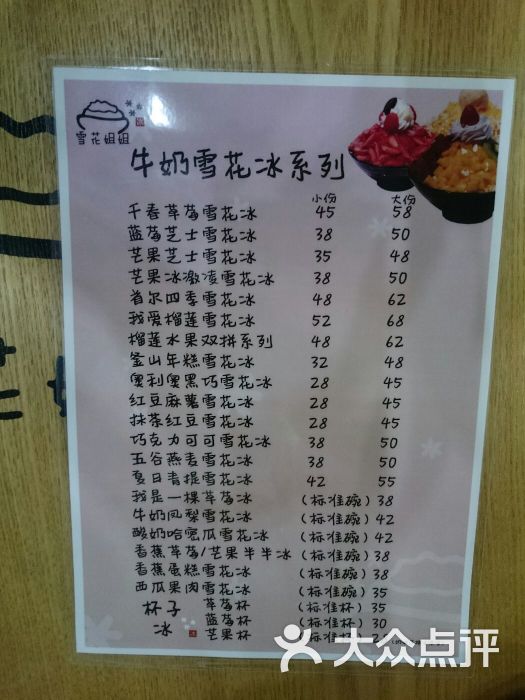 雪花姐姐
牛奶雪花冰系列
小份 大份
千春草莓雪花冰 45 58
蓝莓芝士雪花冰 38 50
芒果芝士雪花冰 35 48
芒果冰激凌雪花冰 38 50
首尔四季雪花冰 48 62
我爱榴莲雪花冰 52 68
榴莲水果双拼系列 48 62
釜山年糕雪花冰 32 48
奥利奥黑巧雪花冰 28 45
红豆麻薯雪花冰 28 45
抹茶红豆雪花冰 28 45
巧克力可可雪花冰 38 50
五谷燕麦雪花冰 38 50
夏日青提雪花冰 42 55
我是一棵草莓冰 (标准碗) 38
牛奶凤梨雪花冰 (标准碗) 42
酸奶哈密瓜雪花冰 (标准碗) 42
香蕉草莓/芒果半半冰 (标准碗) 38
香蕉蛋糕雪花冰 (标准碗) 38
西瓜果肉雪花冰 (标准碗) 35
杯子冰 草莓杯 (标准杯) 35
蓝莓杯 (标准杯) 30
芒果杯 (标准杯)
大众点评